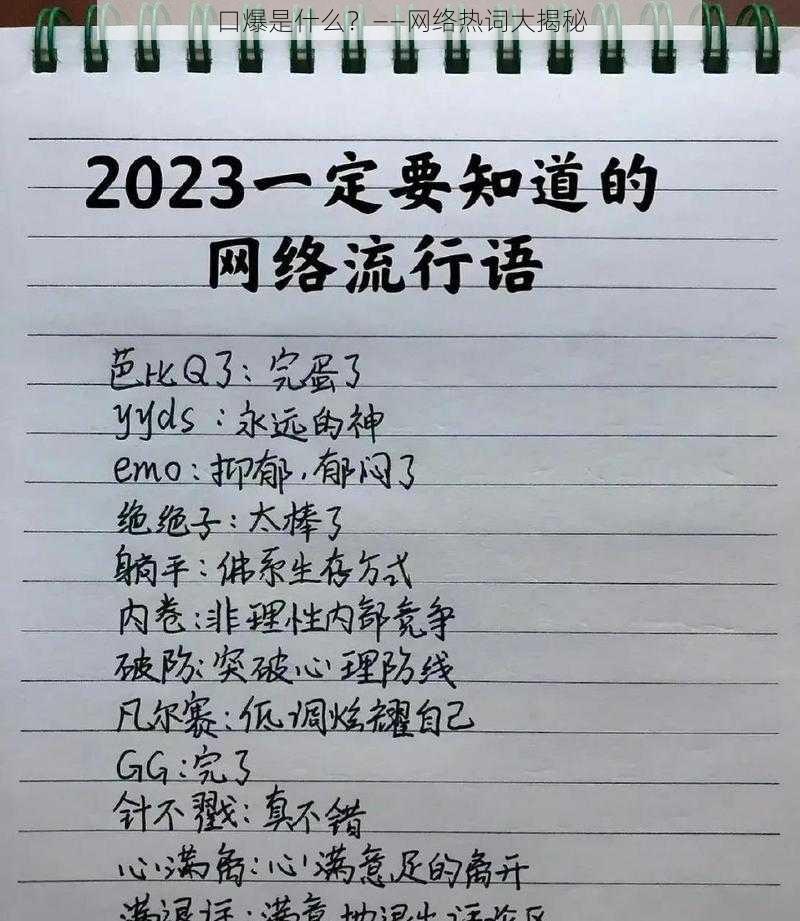 口爆是什么？——网络热词大揭秘
2023一定要知道的
网络流行语
芭比Q了：完蛋了
yyds：永远的神
emo：抑郁，郁闷了
绝绝子：太棒了
躺平：佛系生存方式
内卷：非理性内部竞争
破防：突破心理防线
凡尔赛：低调炫耀自己
GG：完了
针不戳：真不错
心满离：心满意足的离开
满退坑：满意地退出